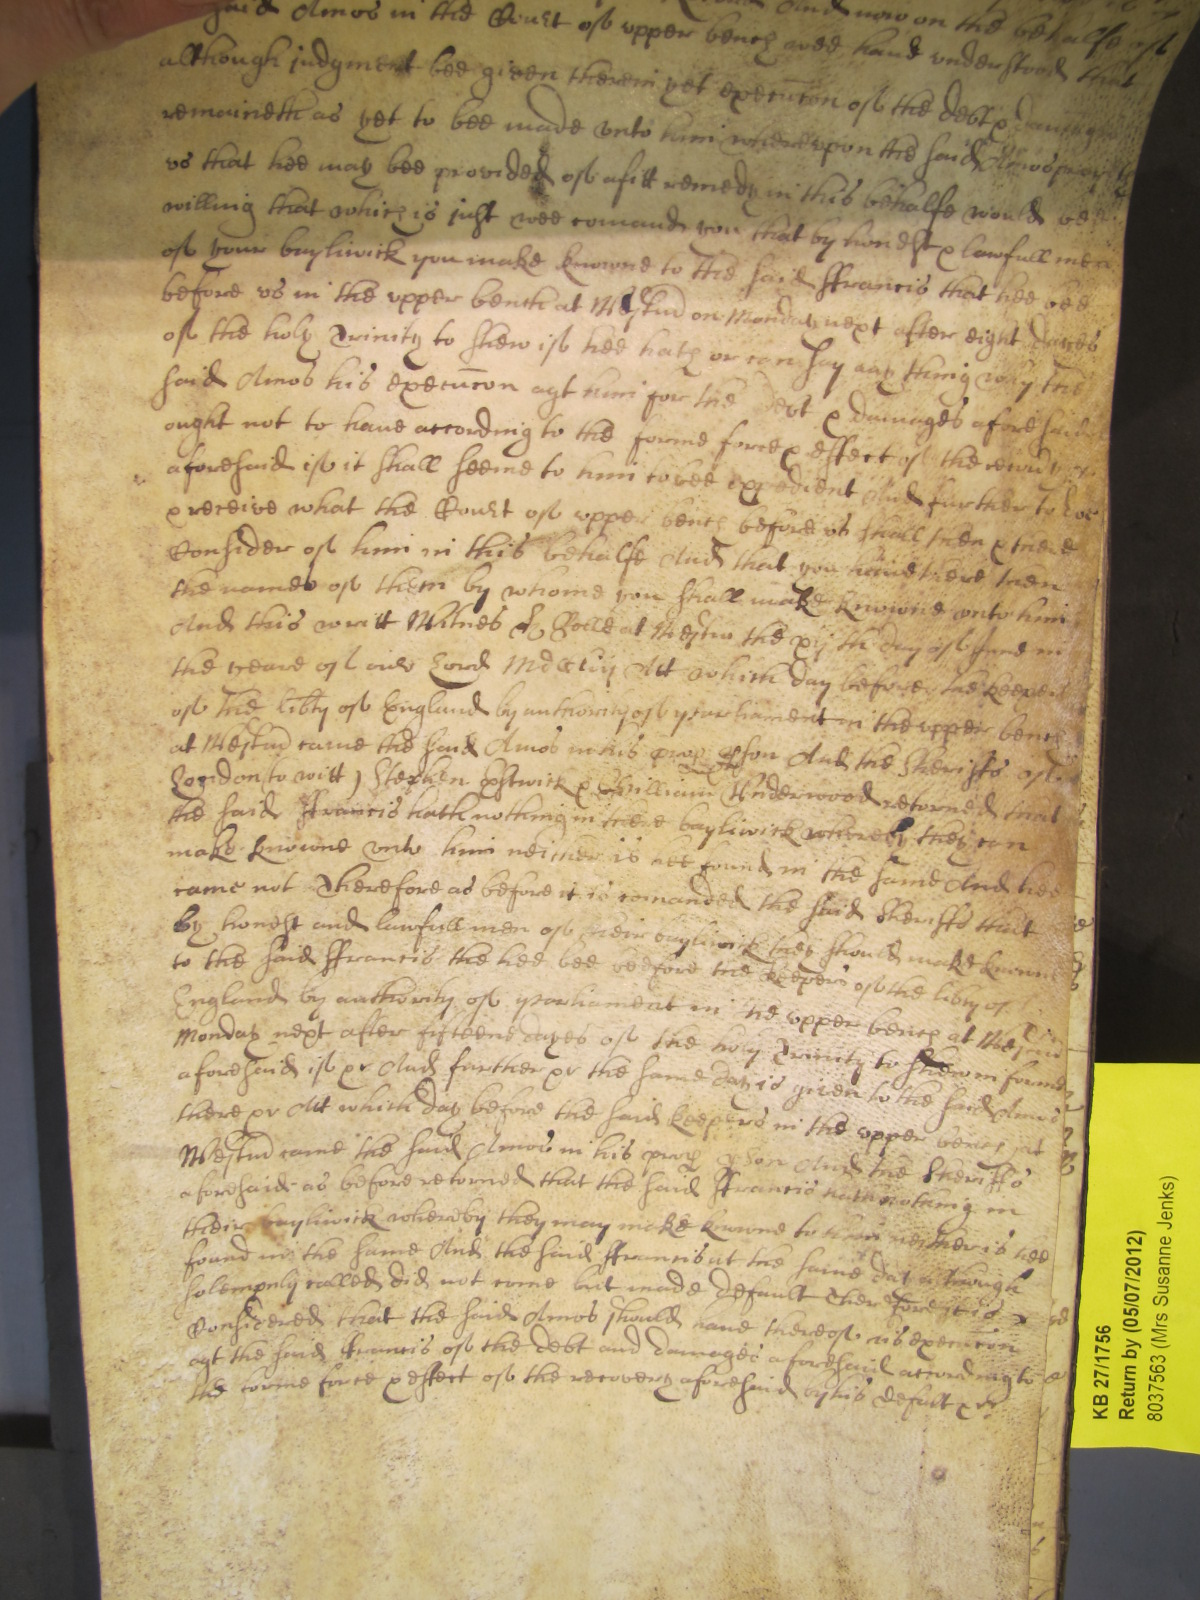 said Amos in the Court of upper bench wee haue understood that
although judgment bee given therein yet execucon of the debt & damages
remaineth as yet to bee made unto him whereupon the said Amos
us that hee may bee provided of a fitt remedy in this behalfe would bee
willing that which is just wee comand you that by honest & lawfull men
of your bayliwick you make knowne to the said Ffrancis that hee bee
before us in the upper bench at Westmr on Monday next after eight dayes
of the holy Trinity to shew if hee hath or can say any thing why the
said Amos his execucon agt him for the debt & damages aforesaid
ought not to haue according to the forme force & effect of the
aforesaid if it shall seeme to him to bee expedient And further to doe
& receive what the Court of upper bench before us shall then & there
Consider of him in this behalfe And that you haue there then
the names of them by whome you shall make knowne unto him
And this writt Witnes H Rolle at Westmr the xijth day of June in
the yeare of our Lord Att which day before the keepers
of the libty of England by authority of parliament in the upper bench
at Westmr came the said Amos in his prop pson And the Sheriffs of
London to witt Stephen Estwick & William Underwood returned that
the said Ffrancis hath nothing in there bayliwick whereby they can
make knowne unto him neither is hee found in the same And hee
came not Therefore as before it is comanded the said Sheriffs that
by honest and lawfull men of their bayliwick they should make knowne
to the said Ffrancis the hee bee beefore the keepers of the libty of
England by authority of parliament in the upper bench at Westmr
Monday next after fifteene dayes of the holy Trinity to shew in forme
aforesaid if &c And further &c the same day is given to the said Amos
there &c Att which day before the said keepers in the upper bench at
Westmr came the said Amos in his prop pson And the Sheriffs
aforesaid as before returned that the said Ffrancis hath nothing in
their bayliwick whereby they may make knowne to him neither is hee
found in the same And the said Ffrancis at the same day although
solempnly called did not come but made default Therefore it is
Considered that the said Amos should haue thereof his execucon
agt the said Ffrancis of the debt and damages aforesaid according to
the forme force & effect of the recovery aforesaid by his default &c
KB 27/1756
Return by (05/07/2012)
8037563 (Mrs Susanne Jenks)